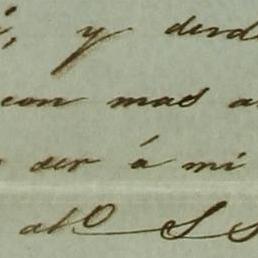 , y desd
con mas a
ser á mi
atº SS